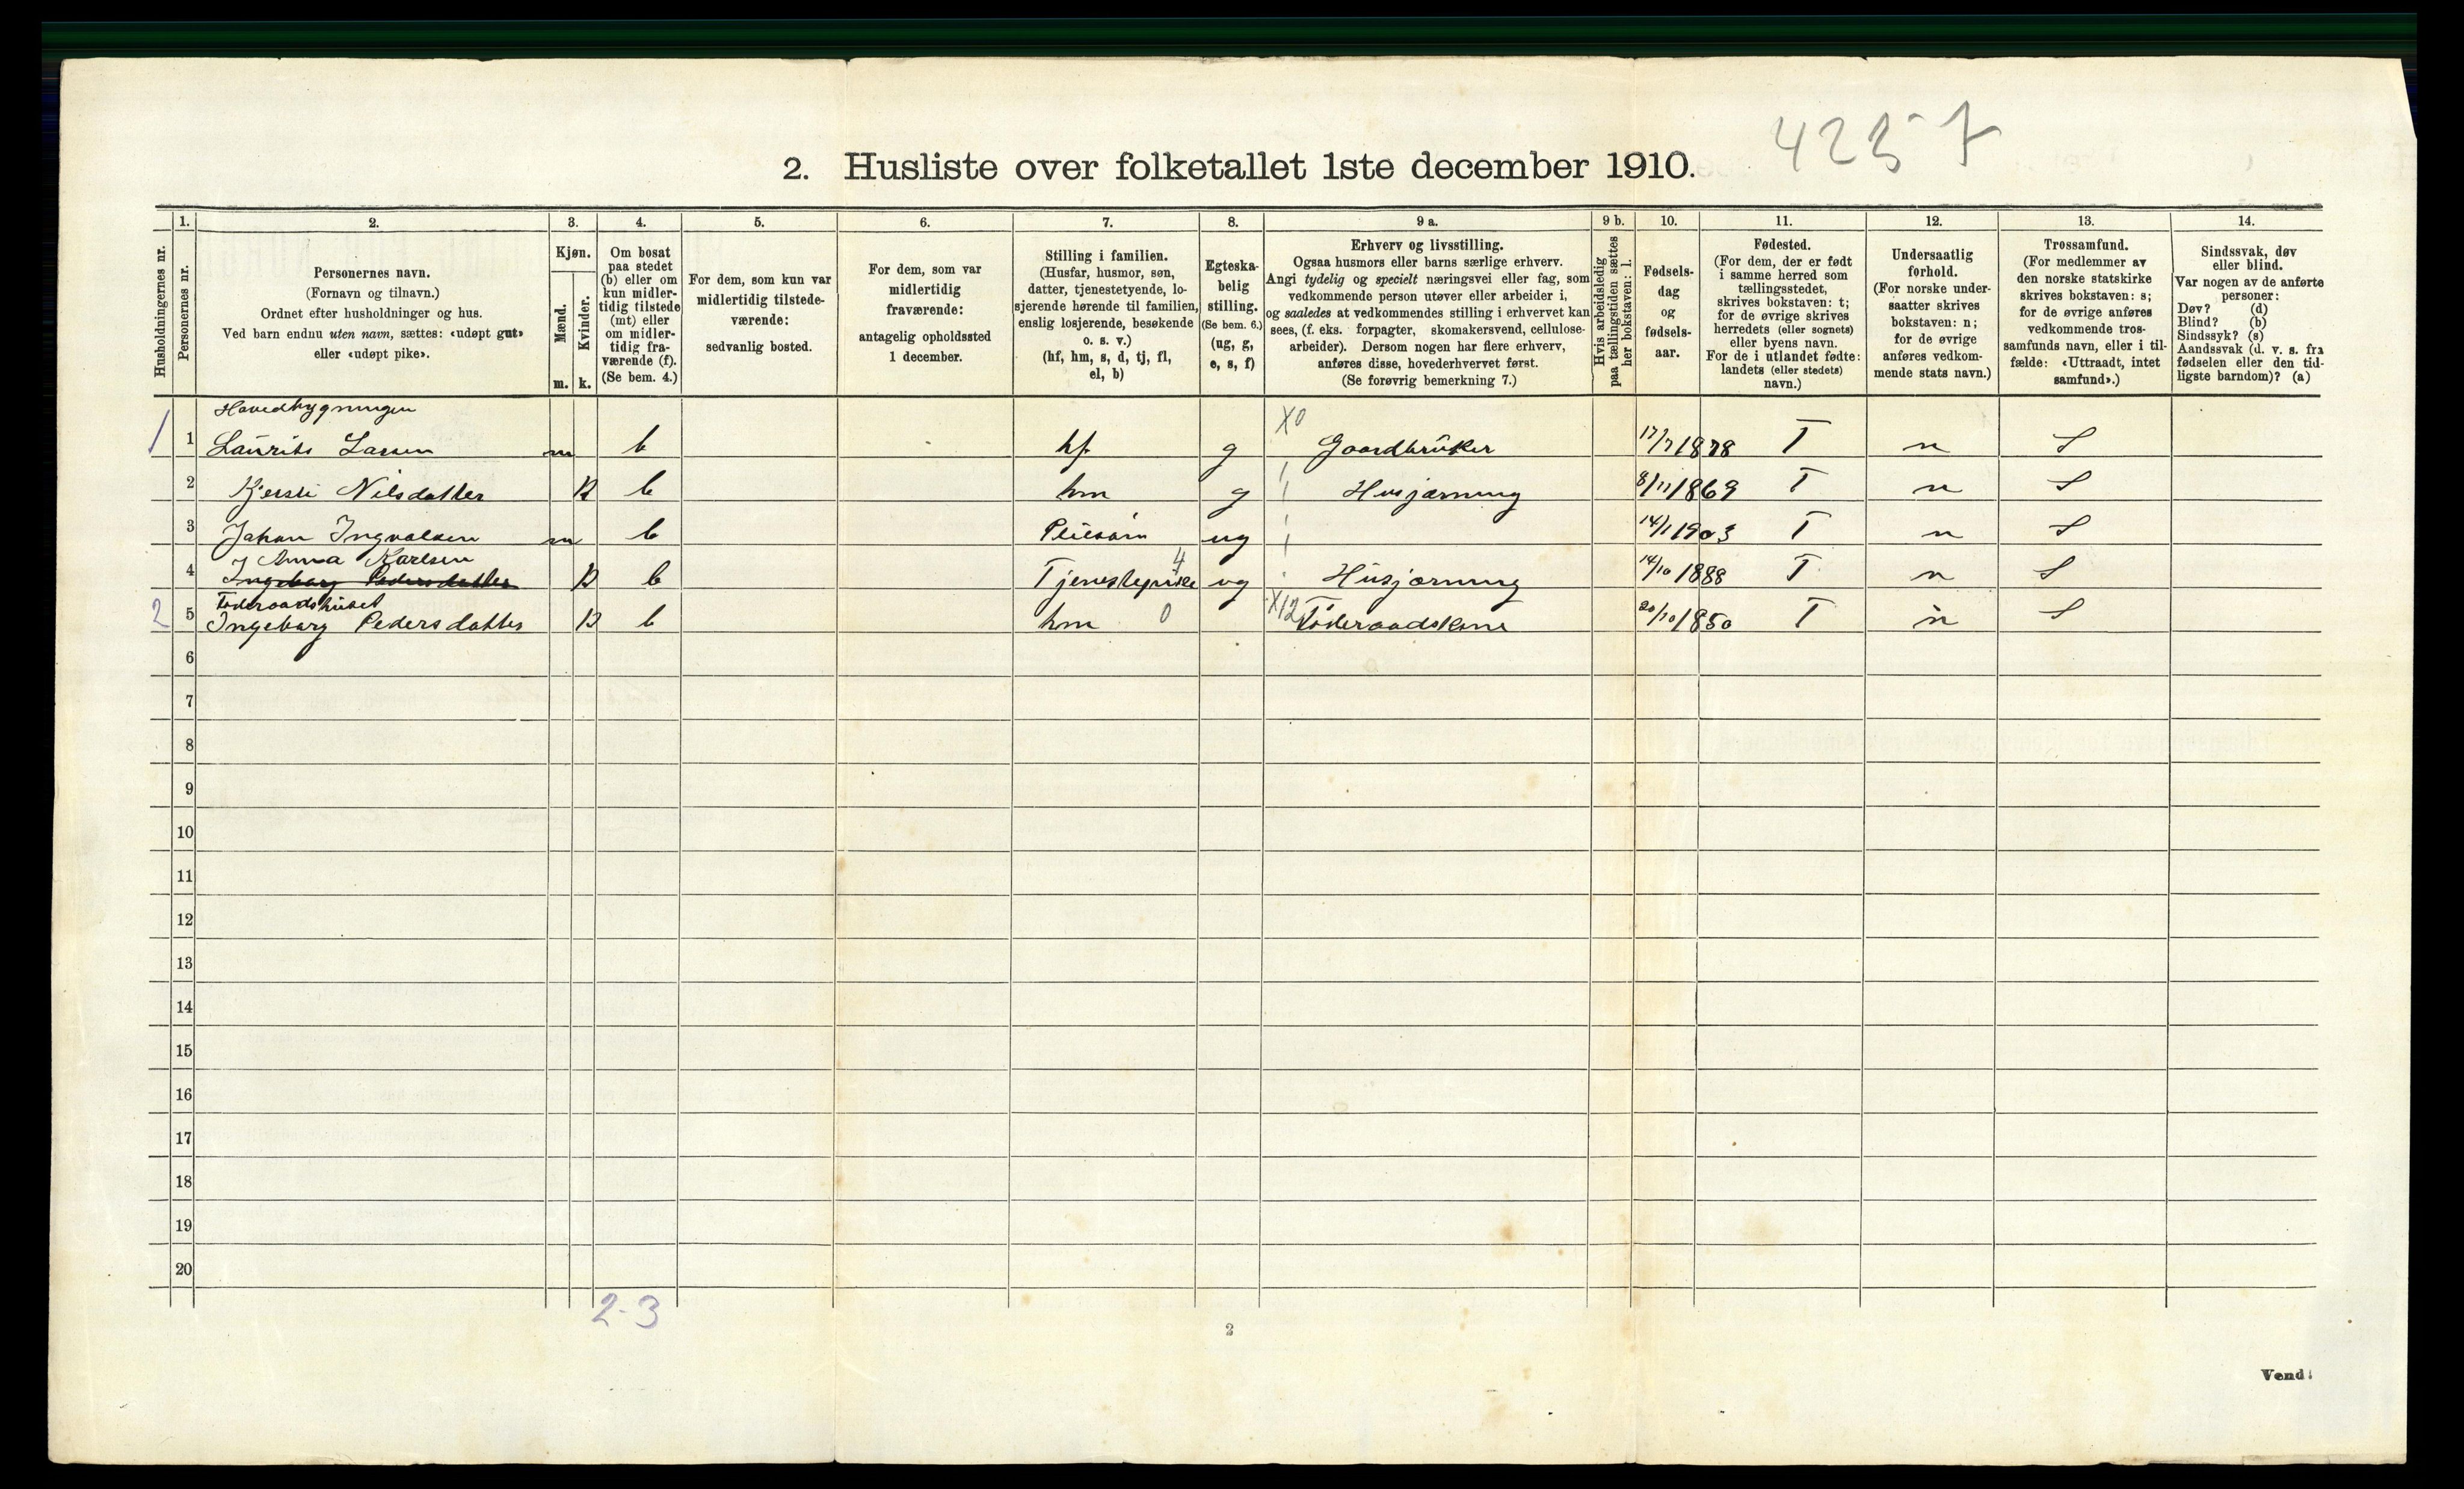 4257
2. Husliste over folketallet 1ste december 1910.
Husholdningernes nr.
1.
Personernes nr.
2.
Personernes navn.
(Fornavn og tilnavn.)
Ordnet efter husholdninger og hus.
Ved barn endnu uten navn, sættes: «udøpt gut»
eller «udøpt pike».
3.
Kjøn.
Mænd.
Kvinder.
m. k.
4.
Om bosat
paa stedet
(b) eller om
kun midler-
tidig tilstede
(mt) eller
om midler-
tidig fra-
værende (f).
(Se bem. 4.)
5.
For dem, som kun var
midlertidig tilstede-
værende:
sedvanlig bosted.
6.
For dem, som var
midlertidig
fraværende:
antagelig opholdssted
1 december.
7.
Stilling i familien.
(Husfar, husmor, søn,
datter, tjenestetyende, lo-
sjerende hørende til familien,
enslig losjerende, besøkende
o. s. v.)
(hf, hm, s, d, tj, fl,
el, b)
8.
Egteska-
belig
stilling.
(Se bem. 6.)
(ug, g,
e, s, f)
9 a.
Erhverv og livsstilling.
Ogsaa husmors eller barns særlige erhverv.
Angi tydelig og specielt næringsvei eller fag, som
vedkommende person utøver eller arbeider i,
og saaledes at vedkommendes stilling i erhvervet kan
sees, (f. eks. forpagter, skomakersvend, cellulose-
arbeider). Dersom nogen har flere erhverv,
anføres disse, hovederhvervet først.
(Se forøvrig bemerkning 7.)
9 b.
Hvis arbeidsledig
paa tællingstiden sættes
her bokstaven: l.
10.
Fødsels-
dag
og
fødsels-
aar.
11.
Fødested.
(For dem, der er født
i samme herred som
tællingsstedet,
skrives bokstaven: t;
for de øvrige skrives
herredets (eller sognets)
eller byens navn.
For de i utlandet fødte:
landets (eller stedets)
navn.)
12.
Undersaatlig
forhold.
(For norske under-
saatter skrives
bokstaven: n;
for de øvrige
anføres vedkom-
mende stats navn.)
13.
Trossamfund.
(For medlemmer av
den norske statskirke
skrives bokstaven: s;
for de øvrige anføres
vedkommende tros-
samfunds navn, eller i til-
fælde: «Uttraadt, intet
samfund».)
14.
Sindssvak, døv
eller blind.
Var nogen av de anførte
personer:
Døv? (d)
Blind? (b)
Sindssyk? (s)
Aandssvak (d. v. s. fra
fødselen eller den tid-
ligste barndom)? (a)
Hovedbygningen
1 1 Laurits Larsen m b hf g X0 Gaardbruker 17/7 1878 T n S
2 Kjersti Nilsdatter k b hm g Husjærning 8/11 1869 T n S
3 Johan Ingvalsen m b Pleiesøn ug 14/1 1903 T n S
Anna Karlsen
4 Ingeborg Pedersdatter k b Tjenestepike 4 ug Husjærning 14/10 1888 T n S
Føderaadshuset
2 5 Ingeborg Pedersdatter k b hm 0 X12 Føderaadskone 20/10 1850 T n S
6
7
8
9
10
11
12
13
14
15
16
17
18
19
20
2-3
2
Vend!